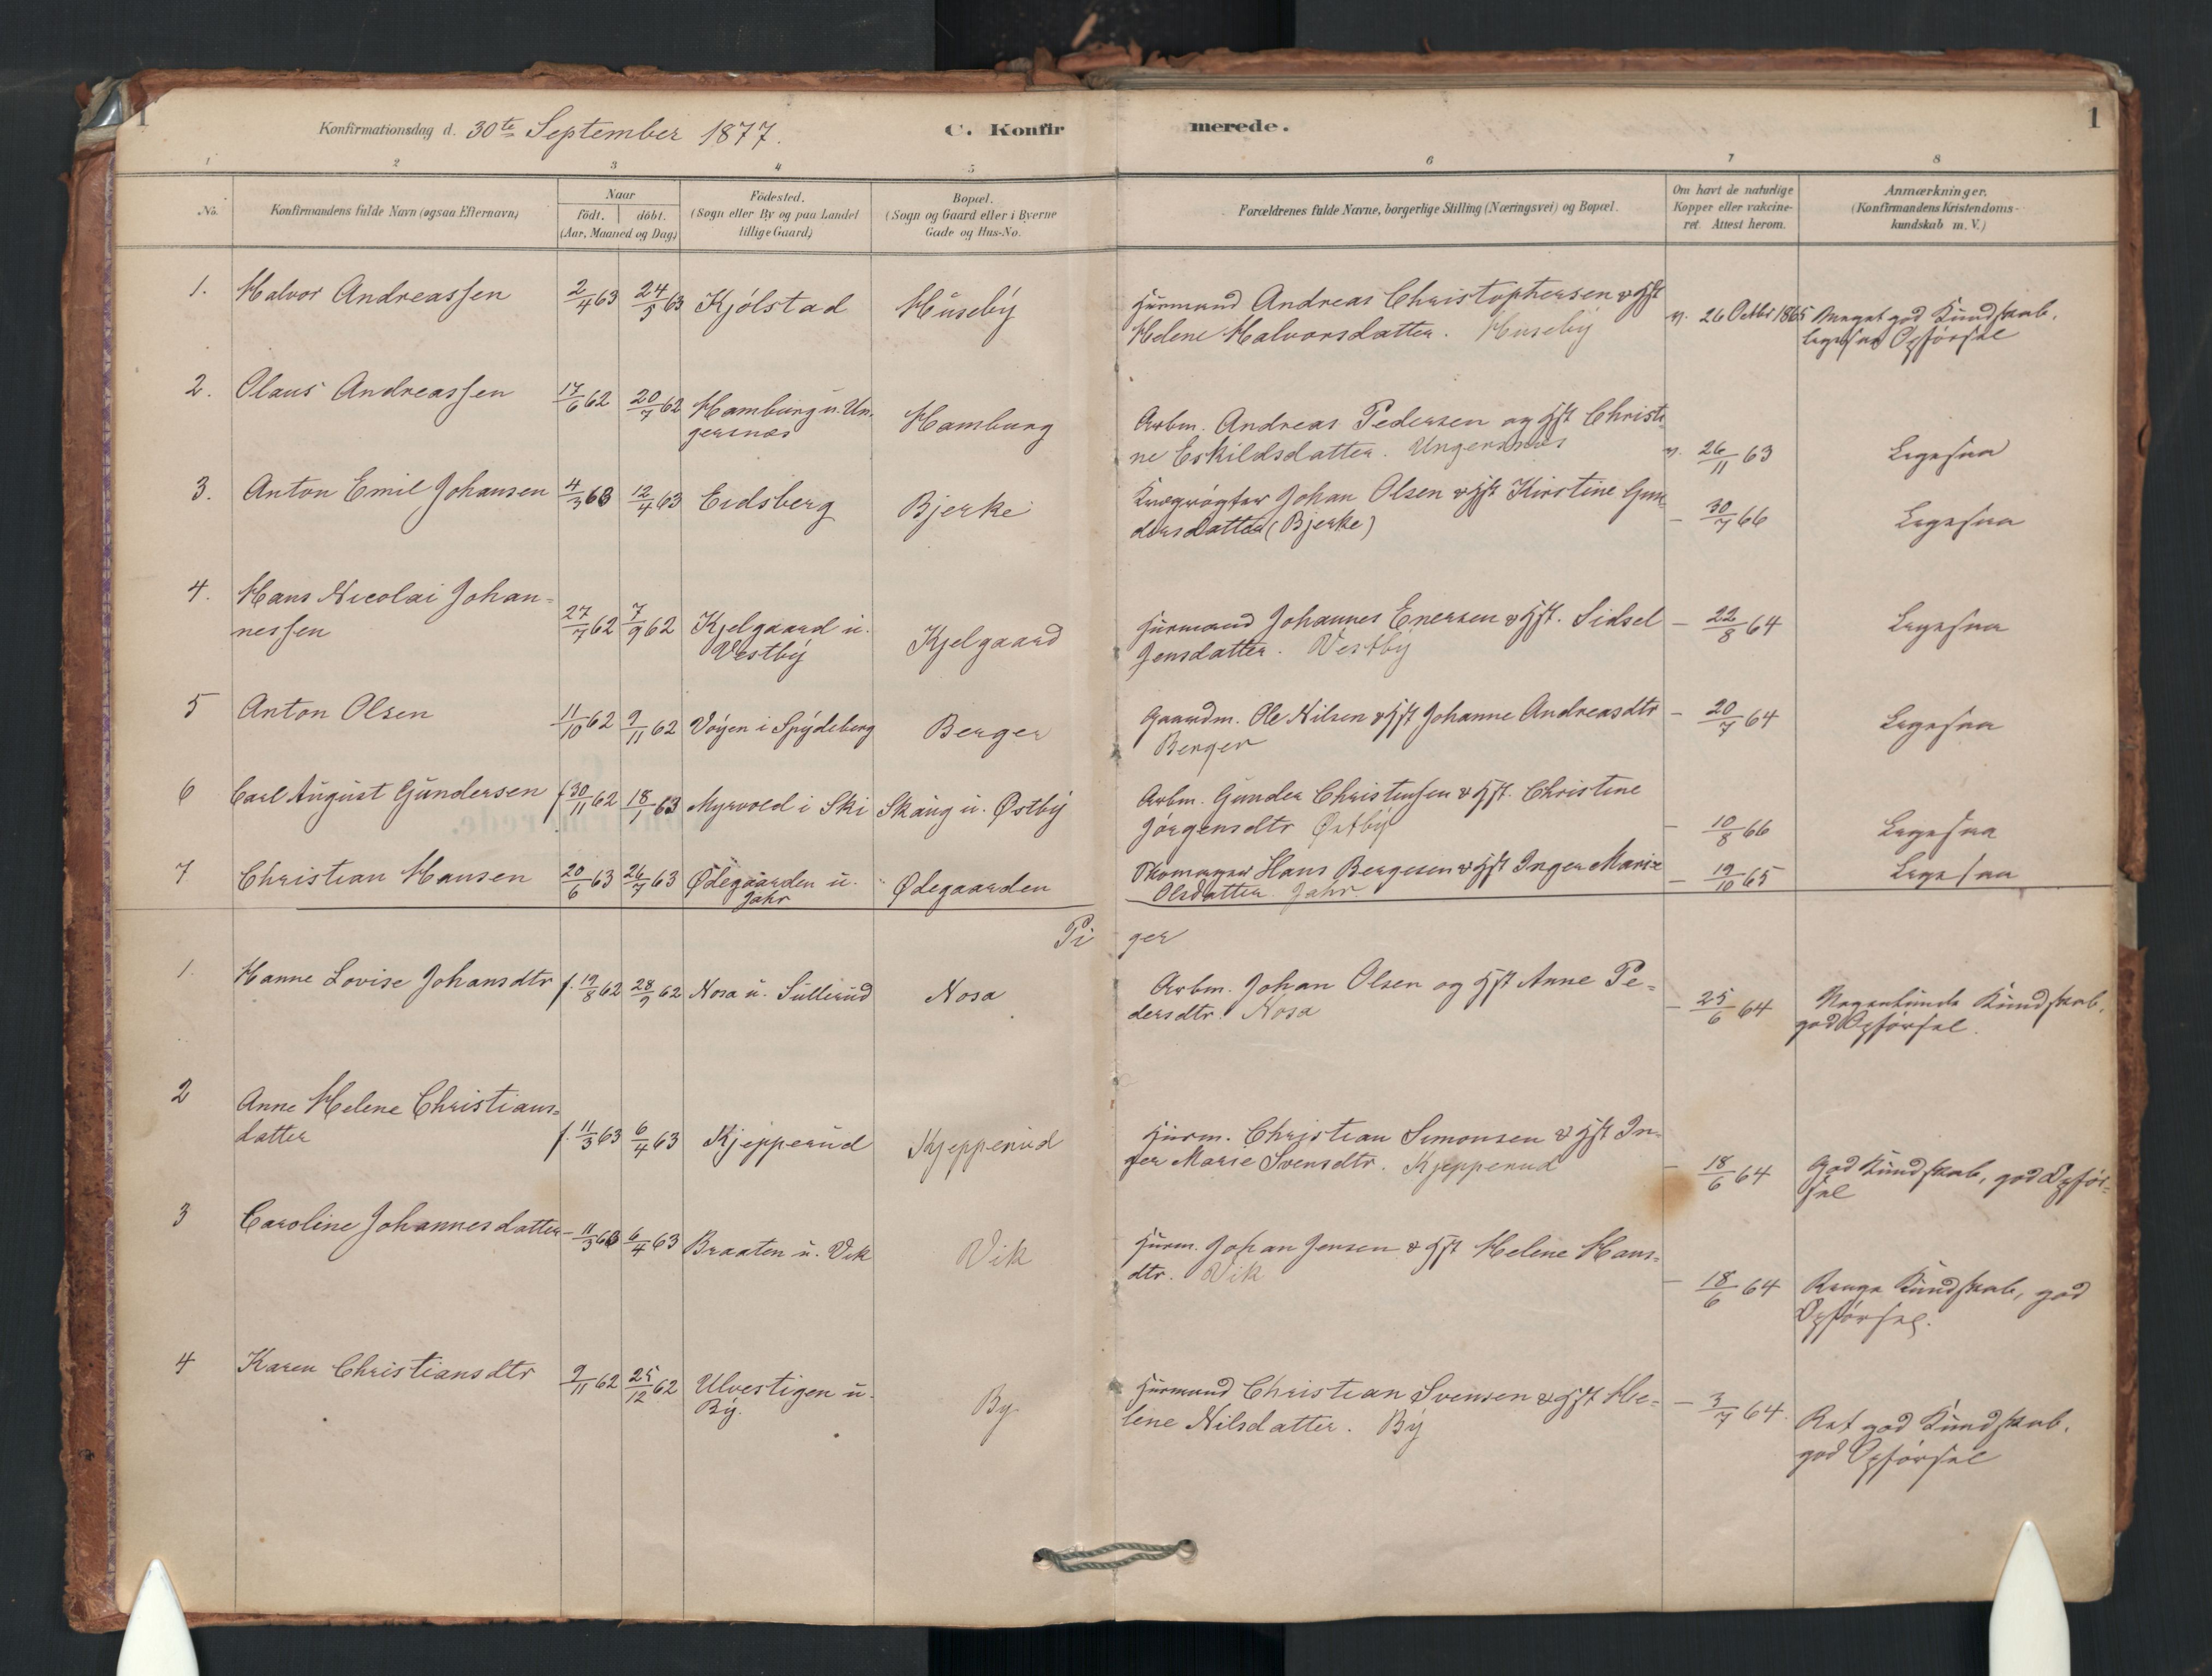 1
Konfirmationsdag d. 30te September 1877.
C. Konfirmerede.
1
1 2 3 4 5 6 7 8
No.
Konfirmandens fulde Navn (ogsaa Efternavn)
Naar
födt. döbt.
(Aar, Maaned og Dag)
Födested.
(Sogn eller By og paa Landet
tillige Gaard)
Bopæl.
(Sogn og Gaard eller i Byerne
Gade og Hus-No.
Forældrenes fulde Navne, borgerlige Stilling (Næringsvei) og Bopæl.
Om havt de naturlige
Kopper eller vakcine-
ret. Attest herom.
Anmærkninger.
(Konfirmandens Kristendoms-
kundskab m. V.)
1. Halvor Andreassen 2/4 63 24/5 63 Kjölstad Huseby Husmand Andreas Christophersen & Hst v. 26 Octbr 1865 Meget god Kundskab,
Helene Halvorsdatter. Huseby ligesaa Opförsel
2. Olaus Andreassen 17/6 62 20/7 62 Hamburg u. Un-
gersnæs Hamburg Arbm. Andreas Pedersen og Hst Christi-
ne Eskildsdatter. Ungersnæs v. 26/11 63 Ligesaa
3. Anton Emil Johansen 4/3 63 12/4 63 Eidsberg Bjerke Johan Olsen & Hst Kirstine Gun-
dersdatter (Bjerke) – 30/7 66 Ligesaa
4. Hans Nicolai Johan-
nessen 27/7 62 7/9 62 Kjelgaard u.
Vestby Kjelgaard Husmand Johannes Enersen & Hst. Sidsel – 22/8 64 Ligesaa
Jensdatter. Vestby
5 Anton Olsen 11/10 62 9/11 62 Vöyen i Spydeberg Berger Gaardm. Ole Nilsen & Hst Johanne Andreasdtr – 20/7 64 Ligesaa
Berger
6 Carl August Gundersen f 30/11 62 18/1 63 Myrvold i Ski Skaug u. Østby Arbm. Gunder Christensen & Hst. Christine
Jörgensdtr Østby – 10/8 66 Ligesaa
7 Christian Hansen 20/6 63 26/7 63 Ødegaarden u.
Jahr Ødegaarden Skomager Hans Bergesen & Hst Inger Marie – 19/10 65 Ligesaa
Olsdatter Jahr.
Piger
1. Hanne Lovise Johansdtr f. 19/8 62 28/9 62 Nosa u. Sullerud Nosa Arbm. Johan Olsen og Hst Anne Pe-
dersdtr. Nosa – 25/6 64 Kundskab,
god Opförsel.
2 Anne Helene Christians-
datter f. 11/3 63 6/4 63 Kjepperud Kjepperud Husm. Christian Simonsen & Hst In-
ger Marie Svensdtr. Kjepperud – 18/6 64 God Kundskab, god Opför-
sel
3 Caroline Johannesdatter – 11/3 63 6/4 63 Braaten u. Vik Vik Husm. Johan Jensen & Hst Helene Hans-
dtr. Vik – 18/6 64 Kundskab, god
Opförsel.
4 Karen Christiansdtr 9/11 62 25/12 62 Ulvestigen u.
By. By Husmand Christian Svensen & Hst He-
lene Nilsdatter. By – 3/7 64. Ret god Kundskab,
god Opförsel